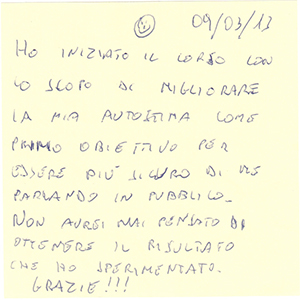 09/03/13
HO INIZIATO IL CORSO CON
LO SCOPO DI MIGLIORARE
LA MIA AUTOSTIMA COME
PRIMO OBIETTIVO PER
ESSERE PIÙ SICURO DI ME
PARLANDO IN PUBBLICO.
NON AVREI MAI PENSATO DI
OTTENERE IL RISULTATO
CHE HO SPERIMENTATO.
GRAZIE!!!